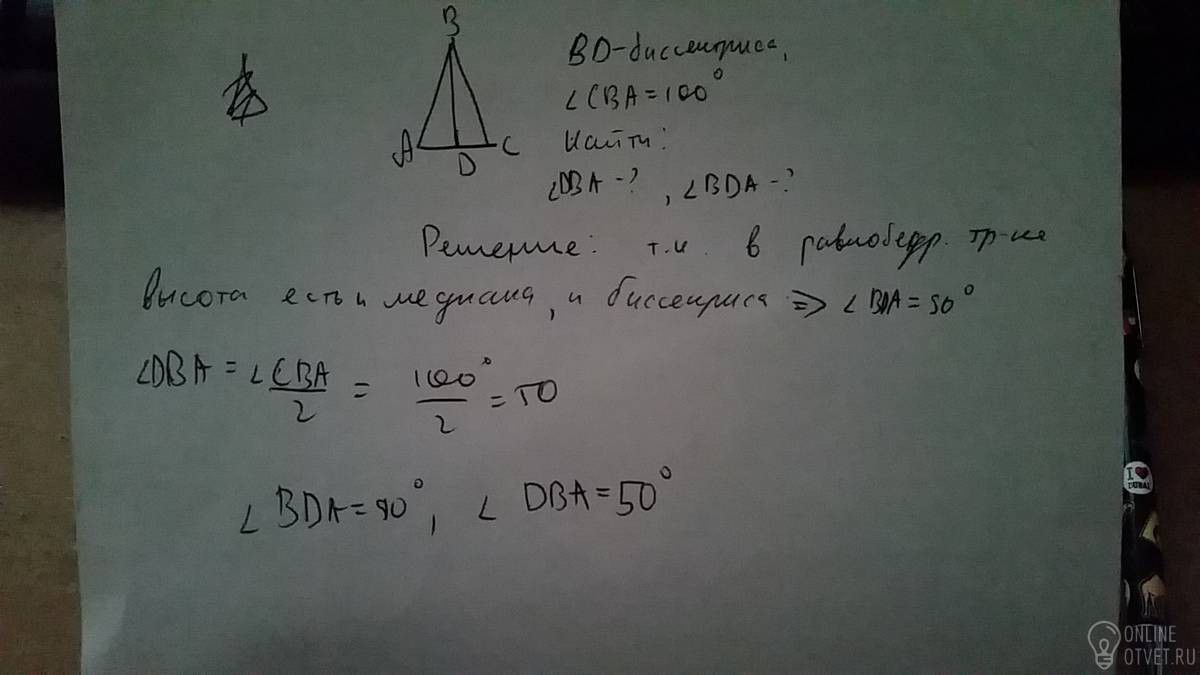 B
A
D
C
BD-биссектриса,
∠CBA=100°
Найти:
∠DBA -? , ∠BDA -?
Решение: т.к. в равнобедр. тр-ке
высота есть и медиана, и биссектриса => ∠BDA = 90°
∠DBA = ∠CBA/2 = 100°/2 = 50
∠BDA=90°, ∠DBA=50°
I ❤ DUBAI
ONLINE
OTVET.RU